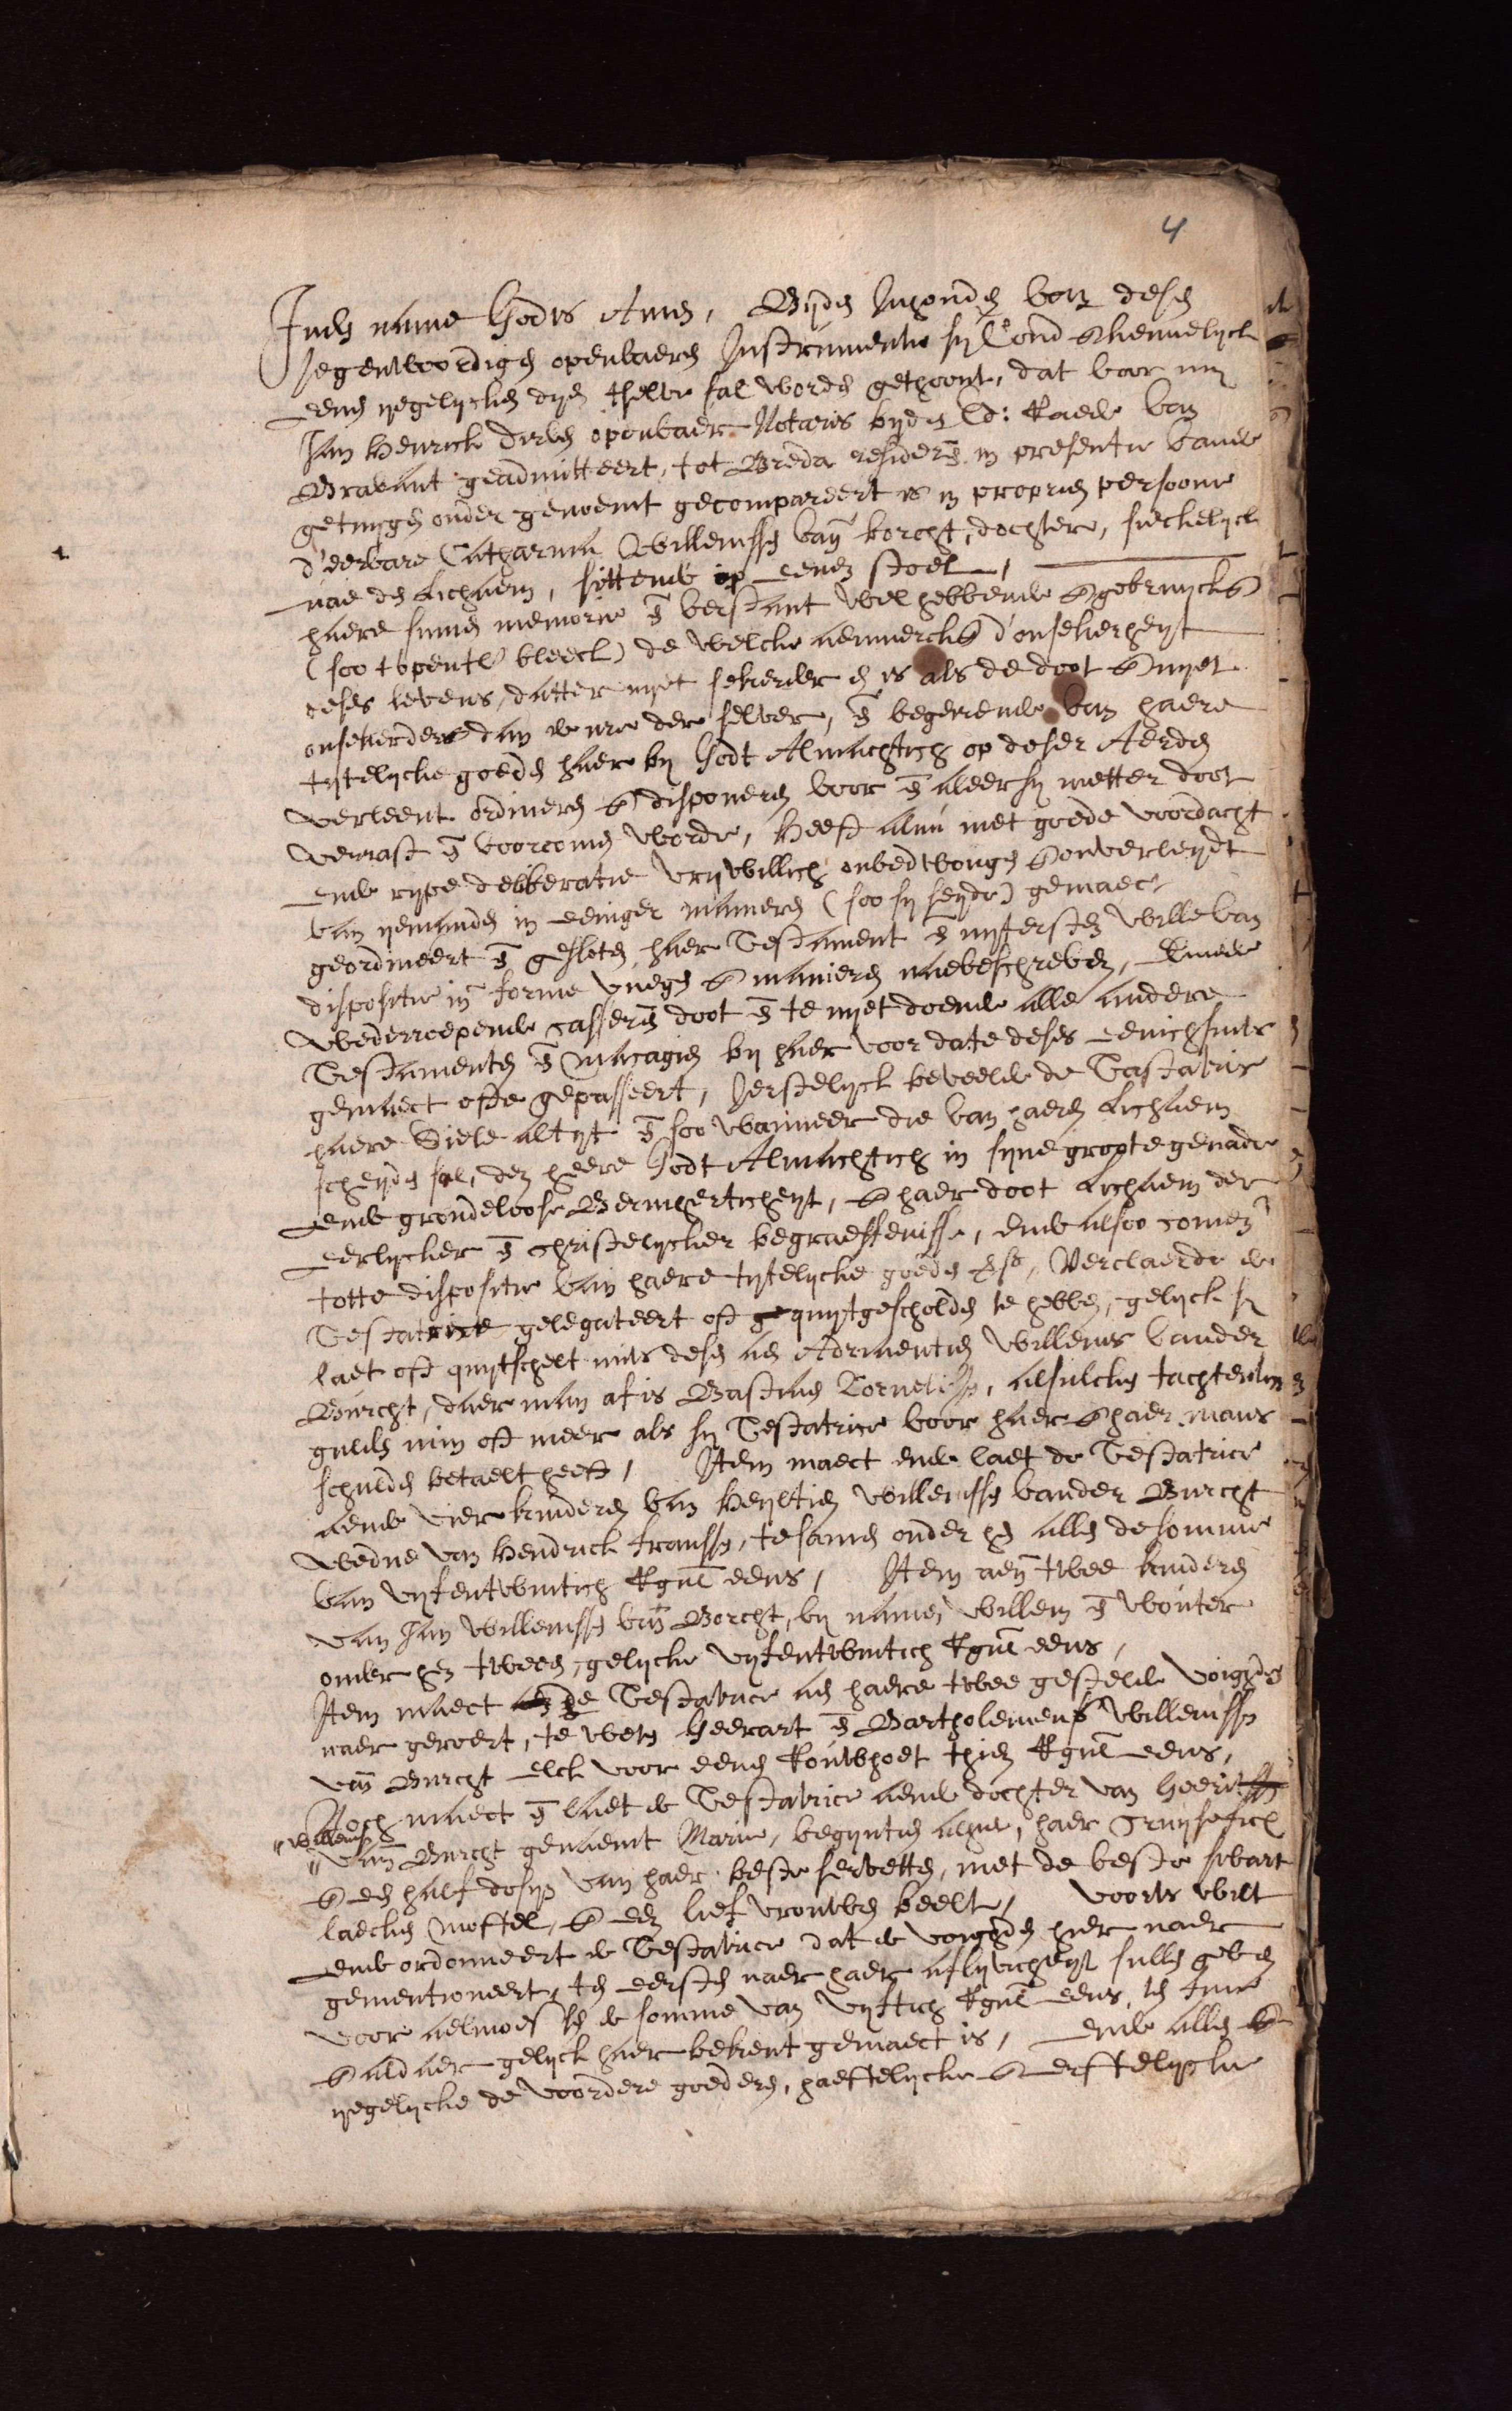 4
Inden name Godts Amen, Bijden Inhouden van desen
Jegenwoordigen openbaeren Instrumente sij Cond & kennelijck
eenen yegelijcken dijen tselve sal worden gethoont, dat voor mij
Jan Henrick Dircx openbaer Notaris bijden Ed: Raede van
Brabant geadmitteert, tot Breda residerende in presentie vande
getuygen onder genoemt gecompareert is in propren persoone
d'eerbare Catharina Willemssen vander borcht, dochtere, sieckelijck
nae den Lichaem, sittende op eenen stoel,
haere sinnen memorie ende verstant wel hebbende & gebruyckende
(soo topentlijck bleeck) de welcke aenmerckende d'onsekerheyt
deses levens, datter nyet sekerder en is als de doot & nyet
onsekerdere dan de ure der selver, ende begerende van haere
tytelycke goeden haer by Godt Almachtich op deser Aerden
verleent ordineren & disponeren voor ende aleer sy metter doot
verrast ende voorcomen worde, Heeft alnu met goede voordacht
ende rype deliberatie vrywillich onbedwongen & onverleydt
van yemanden in eeniger manieren (soo sy seyde) gemaect
geordineert ende gesloten haer Testament ende uytersten wille van
dispositie in forme vuegen & manieren naebeschreven, Inne
wederroepende casserende doot ende te nyet doende alle andere
Testamenten ende Maeagien by haer voor date deses eenichsints
gemaect ofte gepasseert, Ierstelyck beveelde de Testatrice
haere Siele altyt ende soo wanneer die van haeren Lichaem
scheyden sal, den heere Godt Almachtich in syne groote genade
ende grondeloose Bermhertichyt, & haer doot Lichaem der
eerlycker ende christelycker begraeffenisse, ende alsoo comende
totte dispositie van haere tytelycke goeden Eerst, Verclaerde de
Testatrice gelegateert oft gequytgescholden te hebben, gelyck sy
laet oft quytschelt mits desen aen Adriaentien Willems vander
Burcht, daer man af is Bastiaen Cornelissen, alsulcken tachtentich
gulden min oft meer als sy Testatrice voor haer & haer mans
schulden betaelt heeft, Item maect ende laet de Testatrice
aende vier kinderen van Heyltien Willemssen vander Burcht
weduwe van Hendrick Franssen, tesamen onder hen allen de somme
van vyfentwintich Rguldens eens, Item aende twee kinderen
van Jan Willemssen vander Borcht, by name, Willem ende Wouter
onder hen tween, gelycke vyfentwintich Rguldens eens,
Item maect de Testatrice aen haere twee gestelde voighden
naer geroert, te weten Geerart ende Bartholemeus Willemssen
vander Burcht elck voor eenen Rouwhoet thien Rguldens eens,
Noch maect ende laet de Testatrice aende dochter van Geerit
" Willems
" vander Burcht genaemt Marie, begyntien alhier, haer
& een half dosyn van haer beste servetten, met de beste swart
laecken Moffel, & een lief vrouwen beelt, Voorts wilt
ende ordonneert de Testatrice dat de voighden hier naer
gementioneert, ten eersten naer haer aflyvicheyt sullen geven
voor aelmoessen de somme van vyftich Rguldens eens, ten
& aldaer gelyck haer bekent gemaect is, ende allen &
yegelycke de voordere goederen, haeffelycke & erffelycke